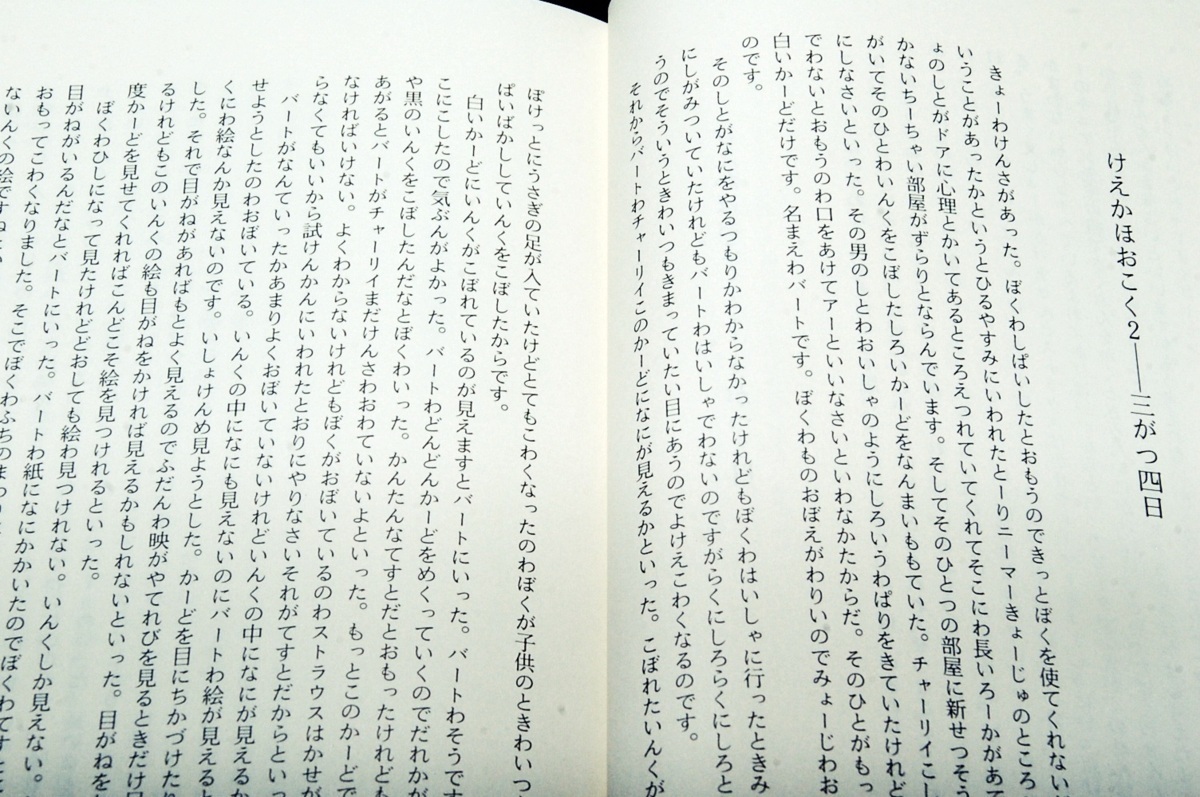 けえかほおこく2――三がつ四日
きょーわけんさがあった。ぼくわしぱいしたとおもうのできっとぼくを使てくれない
いうことがあったかというとひるやすみにいわれたとーりニーマーきょーじゅのところ
ょのしとがドアに心理とかいてあるところえつれていてくれてそこにわ長いろーかがあて
かないちーちゃい部屋がずらりとならんでいます。そしてそのひとつの部屋に新せつそう
がいてそのひとわいんくをこぼしたしろいかーどをなんまいももていた。チャーリイこし
にしなさいといった。その男のしとわおいしゃのようにしろいうわぱりをきていたけれど
でわないとおもうのわ口をあけてアーといいなさいといわなかたからだ。そのひとがもっ
白いかーどだけです。名まえわバートです。ぼくわものおぼえがわりいのでみょーじわお
のです。
そのしとがなにをやるつもりかわからなかったけれどもぼくわはいしゃに行ったときみ
にしがみついていたけれどもバートわはいしゃでわないのですがらくにしろらくにしろと
うのでそういうときわいつもきまっていたい目にあうのでよけえこわくなるのです。
それからバートわチャーリイこのかーどになにが見えるかといった。こぼれたいんくが
ぽけっとにうさぎの足が入ていたけどとてもこわくなったのわぼくが子供のときわいつ
ぱいばかししていんくをこぼしたからです。
白いかーどにいんくがこぼれているのが見えますとバートにいった。バートわそうです
こにこしたので気ぶんがよかった。バートわどんどんかーどをめくっていくのでだれかが
や黒のいんくをこぼしたんだなとぼくわいった。かんたんなてすとだとおもったけれども
あがるとバートがチャーリイまだけんさわおわていないよといった。もっとこのかーどで
なければいけない。よくわからないけれどもぼくがおぼいているのわストラウスはかせが
らなくてもいいから試けんかんにいわれたとおりにやりなさいそれがてすとだからといっ
バートがなんていったかあまりよくおぼいていないけれどいんくの中になにが見えるか
せようとしたのわおぼいている。いんくの中になにも見えないのにバートわ絵が見えると
くにわ絵なんか見えないのです。いしょけんめ見ようとした。かーどを目にちかづけたり
した。それで目がねがあればもとよく見えるのでふだんわ映がやてれびを見るときだけ
るけれどもこのいんくの絵も目がねをかければ見えるかもしれないといった。目がねを
度かーどを見せてくれればこんどこそ絵を見つけれるといった。
ぼくわひしになって見たけれどどおしても絵わ見つけれない。いんくしか見えない。
目がねがいるんだなとバートにいった。バートわ紙になにかかいたのでぼくわてすとに
おもってこわくなりました。そこでぼくわふちのまわりに
ないんくの絵ですねと